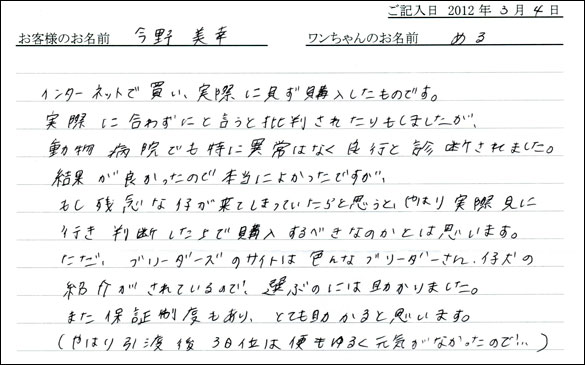 ご記入日 2012年 3月 4日
お客様のお名前 今野 美幸 ワンちゃんのお名前 める
インターネットで買い、実際に見ず購入したものです。
実際に合わずにと言うと批判されたりもしましたが、
動物病院でも特に異常はなく良行と診断されました。
結果が良かったので本当によかったですが、
もし残念な仔が来てしまっていたらと思うと、やはり実際見に
行き判断した上で購入するべきなのかとは思います。
ただ、ブリーダーズのサイトは色んなブリーダーさん、仔犬の
紹介がされているので、選ぶのには助かりました。
また保証制度もあり、とても助かると思います。
(やはり引渡後 3日位は便もゆるく元気がなかったので…)